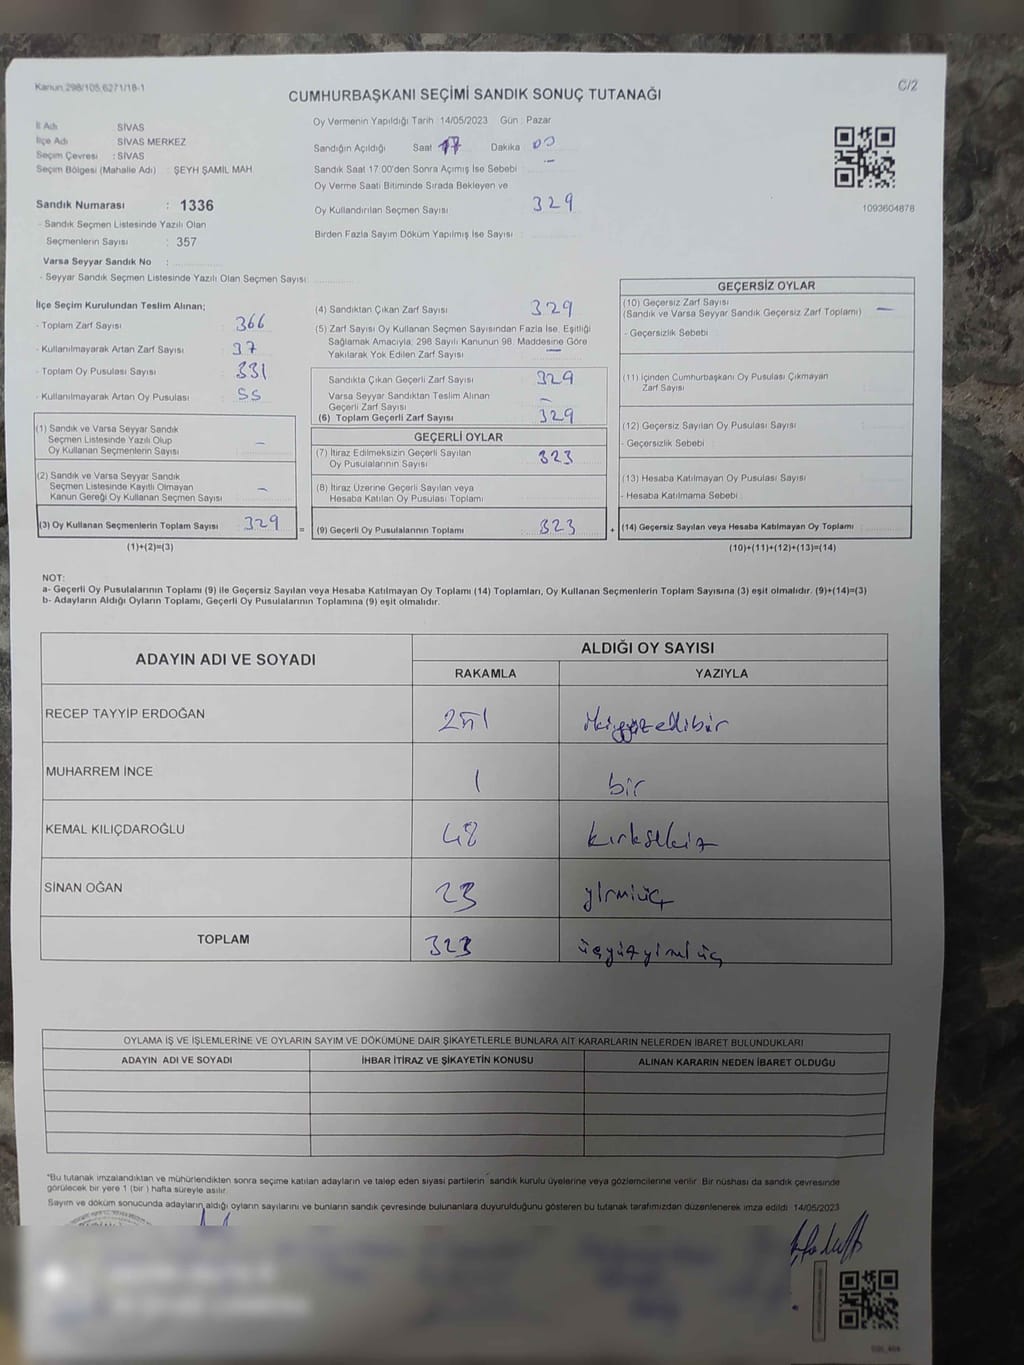 Kanun:298/105,6271/18-1
C/2
CUMHURBAŞKANI SEÇİMİ SANDIK SONUÇ TUTANAĞI
İl Adı SİVAS
İlçe Adı SİVAS MERKEZ
Seçim Çevresi : SİVAS
Seçim Bölgesi (Mahalle Adı) : ŞEYH ŞAMİL MAH.
Oy Vermenin Yapıldığı Tarih : 14/05/2023 Gün : Pazar
Sandığın Açıldığı Saat 17 Dakika 00
Sandık Saat 17:00'den Sonra Açımış İse Sebebi : —
Oy Verme Saati Bitiminde Sırada Bekleyen ve
Oy Kullandırılan Seçmen Sayısı 329
Birden Fazla Sayım Döküm Yapılmış İse Sayısı :
1093604878
Sandık Numarası : 1336
- Sandık Seçmen Listesinde Yazılı Olan
Seçmenlerin Sayısı : 357
Varsa Seyyar Sandık No :
- Seyyar Sandık Seçmen Listesinde Yazılı Olan Seçmen Sayısı:
İlçe Seçim Kurulundan Teslim Alınan;
- Toplam Zarf Sayısı : 366
- Kullanılmayarak Artan Zarf Sayısı : 37
- Toplam Oy Pusulası Sayısı : 331
- Kullanılmayarak Artan Oy Pusulası : SS
(1) Sandık ve Varsa Seyyar Sandık
Seçmen Listesinde Yazılı Olup
Oy Kullanan Seçmenlerin Sayısı : —
(2) Sandık ve Varsa Seyyar Sandık
Seçmen Listesinde Kayıtlı Olmayan
Kanun Gereği Oy Kullanan Seçmen Sayısı : —
(3) Oy Kullanan Seçmenlerin Toplam Sayısı : 329 =
(1)+(2)=(3)
(4) Sandıktan Çıkan Zarf Sayısı : 329
(5) Zarf Sayısı Oy Kullanan Seçmen Sayısından Fazla İse, Eşitliği
Sağlamak Amacıyla, 298 Sayılı Kanunun 98. Maddesine Göre
Yakılarak Yok Edilen Zarf Sayısı : —
Sandıkta Çıkan Geçerli Zarf Sayısı : 329
Varsa Seyyar Sandıktan Teslim Alınan
Geçerli Zarf Sayısı : —
(6) Toplam Geçerli Zarf Sayısı : 329
GEÇERLİ OYLAR
(7) İtiraz Edilmeksizin Geçerli Sayılan
Oy Pusulalarının Sayısı : 323
(8) İtiraz Üzerine Geçerli Sayılan veya
Hesaba Katılan Oy Pusulası Toplamı :
(9) Geçerli Oy Pusulalarının Toplamı : 323 +
GEÇERSİZ OYLAR
(10) Geçersiz Zarf Sayısı
(Sandık ve Varsa Seyyar Sandık Geçersiz Zarf Toplamı) : —
- Geçersizlik Sebebi :
(11) İçinden Cumhurbaşkanı Oy Pusulası Çıkmayan
Zarf Sayısı :
(12) Geçersiz Sayılan Oy Pusulası Sayısı :
- Geçersizlik Sebebi :
(13) Hesaba Katılmayan Oy Pusulası Sayısı :
- Hesaba Katılmama Sebebi :
(14) Geçersiz Sayılan veya Hesaba Katılmayan Oy Toplamı :
(10)+(11)+(12)+(13)=(14)
NOT:
a- Geçerli Oy Pusulalarının Toplamı (9) ile Geçersiz Sayılan veya Hesaba Katılmayan Oy Toplamı (14) Toplamları, Oy Kullanan Seçmenlerin Toplam Sayısına (3) eşit olmalıdır. (9)+(14)=(3)
b- Adayların Aldığı Oyların Toplamı, Geçerli Oy Pusulalarının Toplamına (9) eşit olmalıdır.
ADAYIN ADI VE SOYADI ALDIĞI OY SAYISI
RAKAMLA YAZIYLA
RECEP TAYYİP ERDOĞAN 251 ikiyyüzellibir
MUHARREM İNCE 1 bir
KEMAL KILIÇDAROĞLU 48 kırksekiz
SİNAN OĞAN 23 yirmiüç
TOPLAM 323 üçyüzyirmiüç
OYLAMA İŞ VE İŞLEMLERİNE VE OYLARIN SAYIM VE DÖKÜMÜNE DAİR ŞİKAYETLERLE BUNLARA AİT KARARLARIN NELERDEN İBARET BULUNDUKLARI
ADAYIN ADI VE SOYADI İHBAR İTİRAZ VE ŞİKAYETİN KONUSU ALINAN KARARIN NEDEN İBARET OLDUĞU
*Bu tutanak imzalandıktan ve mühürlendikten sonra seçime katılan adayların ve talep eden siyasi partilerin sandık kurulu üyelerine veya gözlemcilerine verilir. Bir nüshası da sandık çevresinde
görülecek bir yere 1 (bir ) hafta süreyle asılır.
Sayım ve döküm sonucunda adayların aldığı oyların sayılarını ve bunların sandık çevresinde bulunanlara duyurulduğunu gösteren bu tutanak tarafımızdan düzenlenerek imza edildi. 14/05/2023